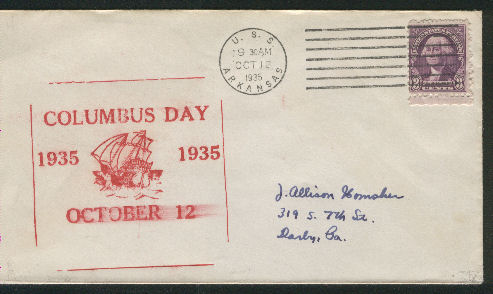 U. S. S
9 30AM
OCT 12
1935
ARKANSAS
COLUMBUS DAY
1935 1935
OCTOBER 12
J. Allison Homsher
319 S. 7th St.
Darby, Pa.